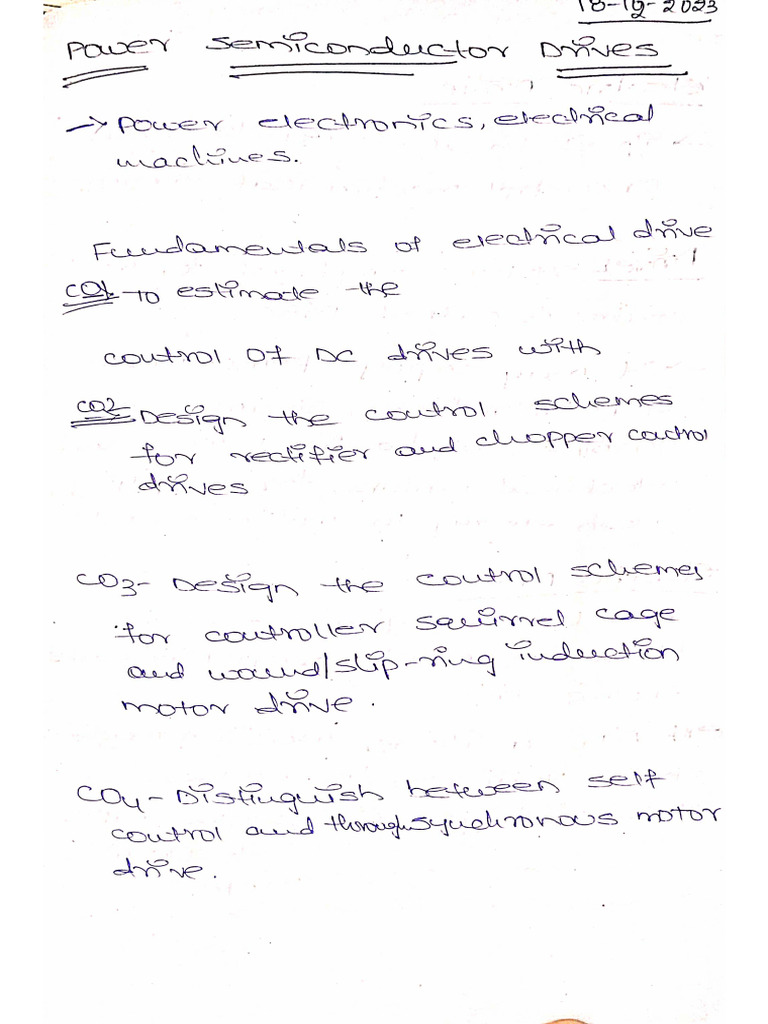 18-12-2023
Power Semiconductor Drives
→ Power electronics, electrical
machines.
Fundamentals of electrical drive
CO1 - To estimate the
control of DC drives with
CO2 Design the control schemes
for rectifier and chopper control
drives
CO3 - Design the control schemes
for controller squirrel cage
and wound/slip-ring induction
motor drive.
CO4 - Distinguish between self
control and through synchronous motor
drive.